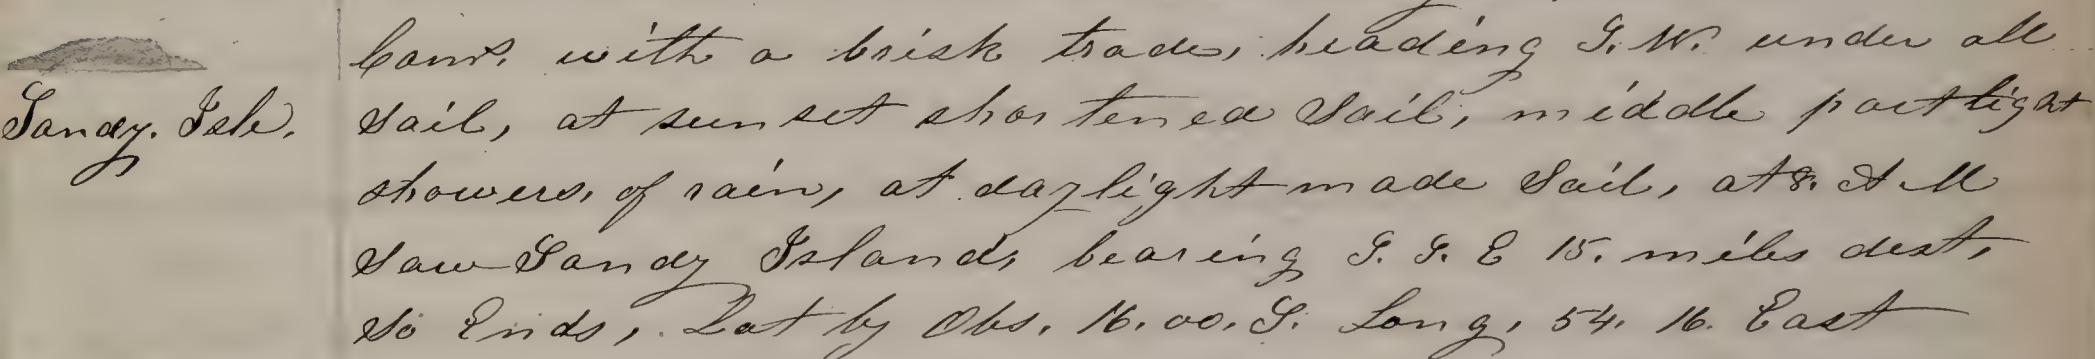 Com's. with a brisk trade, heading S.W. under all
Sandy. Isle. Sail, at sunset shortened Sail, middle part light
showers, of rain, at daylight made Sail, at 8. A.M
Saw Sandy Island, bearing S. S. E 15. miles dist,
So Ends, Lat by Obs. 16.00. S. Long, 54. 16. East